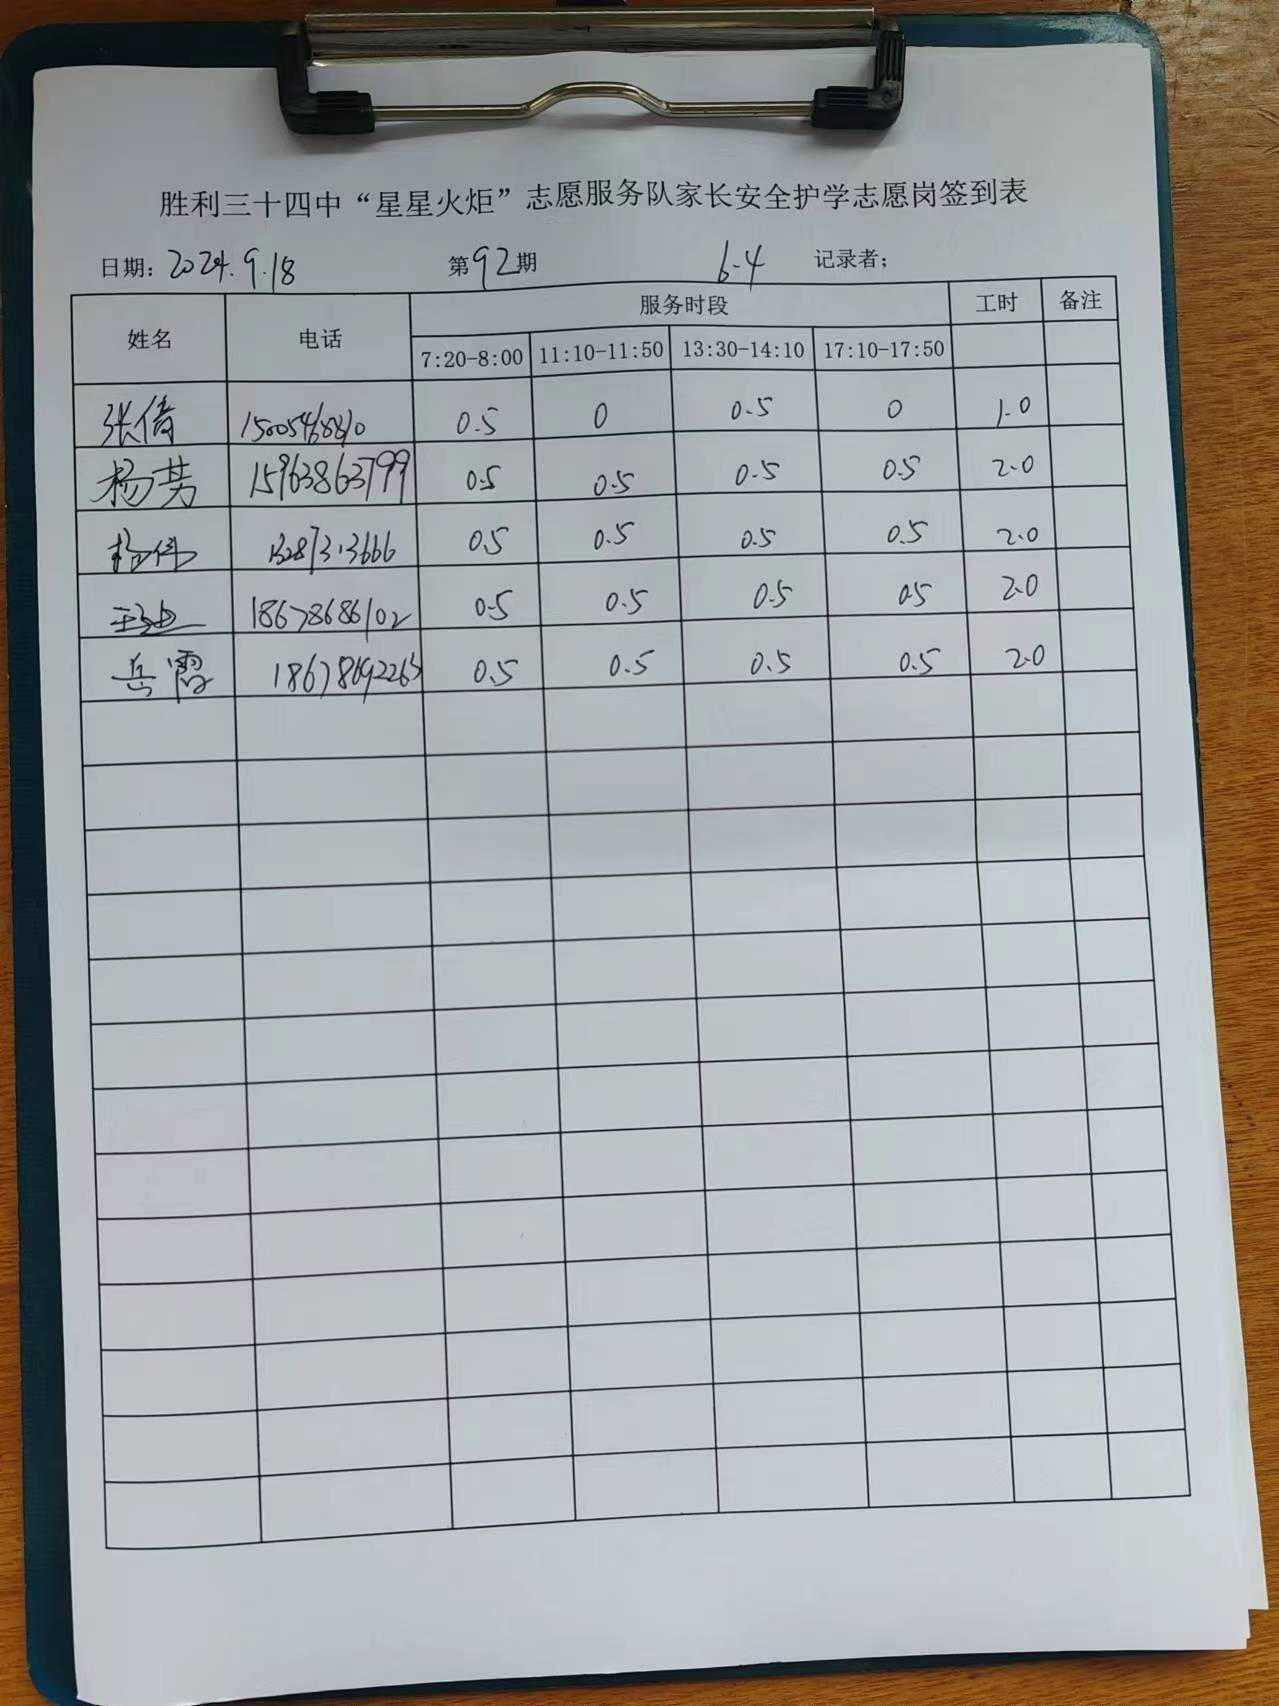 胜利三十四中“星星火炬”志愿服务队家长安全护学志愿岗签到表
日期: 2024.9.18 第92期 6-4 记录者;
姓名 电话 服务时段 工时 备注
7:20-8:00 11:10-11:50 13:30-14:10 17:10-17:50
张倩 0.5 0 0.5 0 1.0
杨芸 15963863799 0.5 0.5 0.5 0.5 2.0
杨伟 13287313666 0.5 0.5 0.5 0.5 2.0
18678686102 0.5 0.5 0.5 0.5 2.0
岳霞 18678692263 0.5 0.5 0.5 0.5 2.0